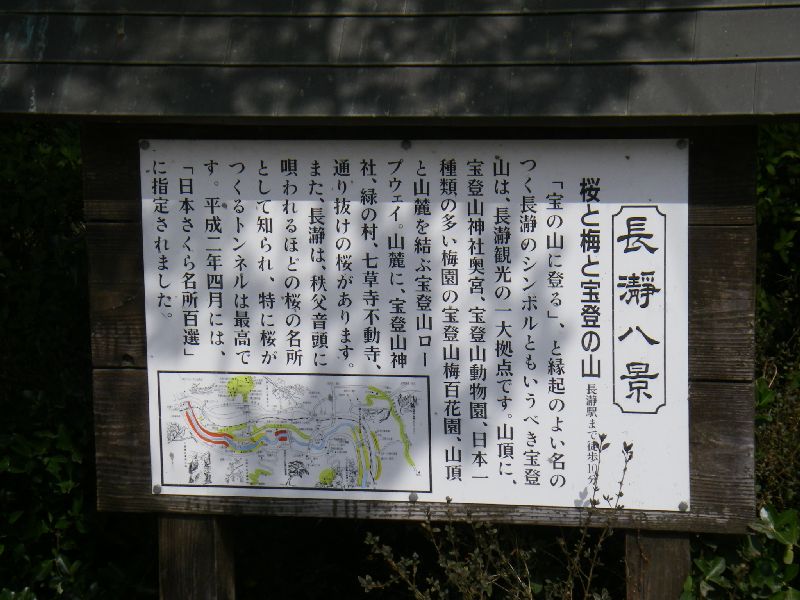 長瀞八景
桜と梅と宝登の山 長瀞駅まで徒歩10分
「宝の山に登る」、と縁起のよい名の
つく長瀞のシンボルともいうべき宝登
山は、長瀞観光の一大拠点です。山頂に、
宝登山神社奥宮、宝登山動物園、日本一
種類の多い梅園の宝登山梅百花園、山頂
と山麓を結ぶ宝登山ロー
プウェイ。山麓に、宝登山神
社、緑の村、七草寺不動寺、
通り抜けの桜があります。
また、長瀞は、秩父音頭に
唄われるほどの桜の名所
として知られ、特に桜が
つくるトンネルは最高で
す。平成二年四月には、
「日本さくら名所百選」
に指定されました。